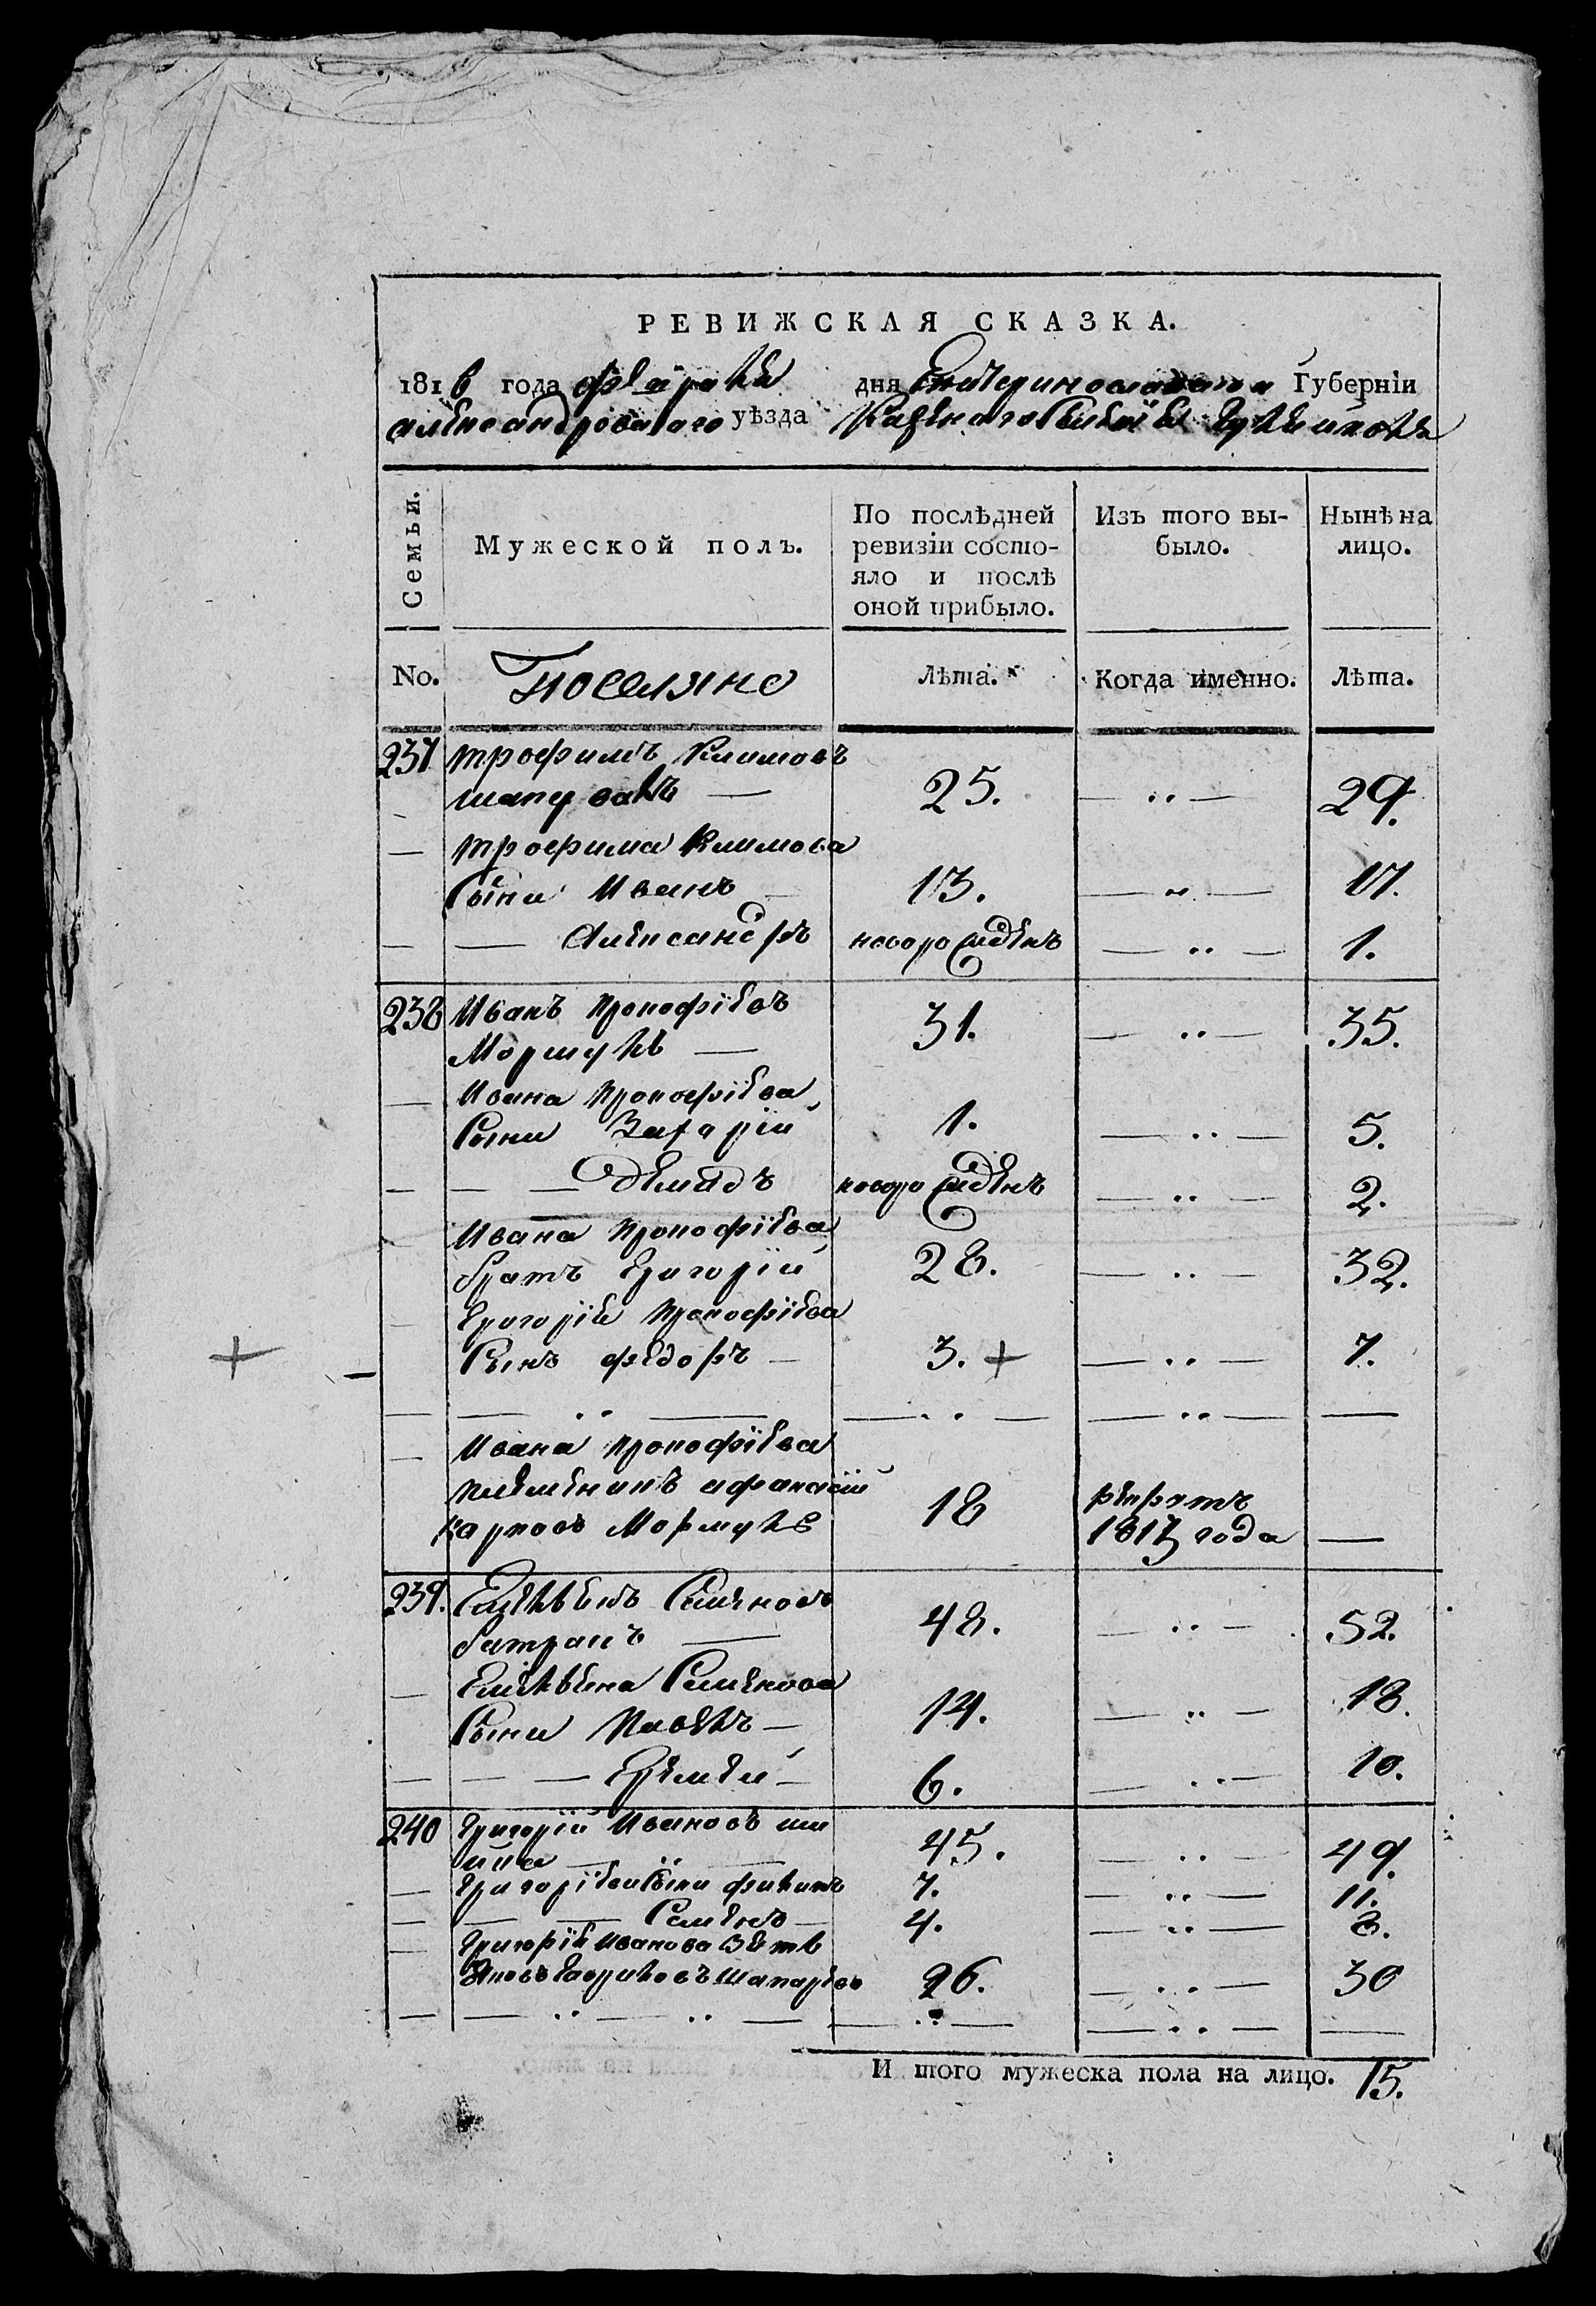 РЕВИЖСКАЯ СКАЗКА.
1816 года февраля дня Екатеринославской Губернїи
александровского уѣзда Казенного Селенїя Гуляйполя
Семьи. Мужеской полъ. По послѣдней ревизїи состояло и послѣ оной прибыло. Изъ того выбыло. Нынѣ на лицо.
No. Поселяне Лѣта. Когда именно. Лѣта.
237 трофимъ Климовъ
шаповалъ — 25. — „ — 29.
— трофима Климова
Сыни Иванъ — 13. — „ — 17.
— — Александръ новорожденъ — „ — 1.
238 Иванъ Прокофїевъ
— 31. — „ — 35.
— Ивана Прокофїева
Сыни Захарїй 1. — „ — 5.
— — — Демидъ новорожденъ — „ — 2.
— Ивана Прокофїева
братъ Григорїй 28. — „ — 32.
— Григорїя Прокофїева
+ — Сынъ федоръ — 3. + — „ — 7.
— — „ — — „ — — „ — —
— Ивана Прокофїева
племеникъ афанасїй
Карповъ 18 рекрутъ
1813 года —
239. Семеновъ
— 48. — „ — 52.
— Семенова
Сыни Павелъ — 14. — „ — 18.
— — — Еремѣй — 6. — „ — 10.
240 Григорїй Ивановъ ши
шка — „ — 45. — „ — 49.
— Григорїя Сыни филипъ 7. — „ — 11.
— — — Семенъ — 4. — „ — 8.
— Григорїя Иванова Зять
Яковъ Гавриловъ 26. — „ — 30
— — „ — „ — — „ — — „ — —
И того мужеска пола на лицо. 15.